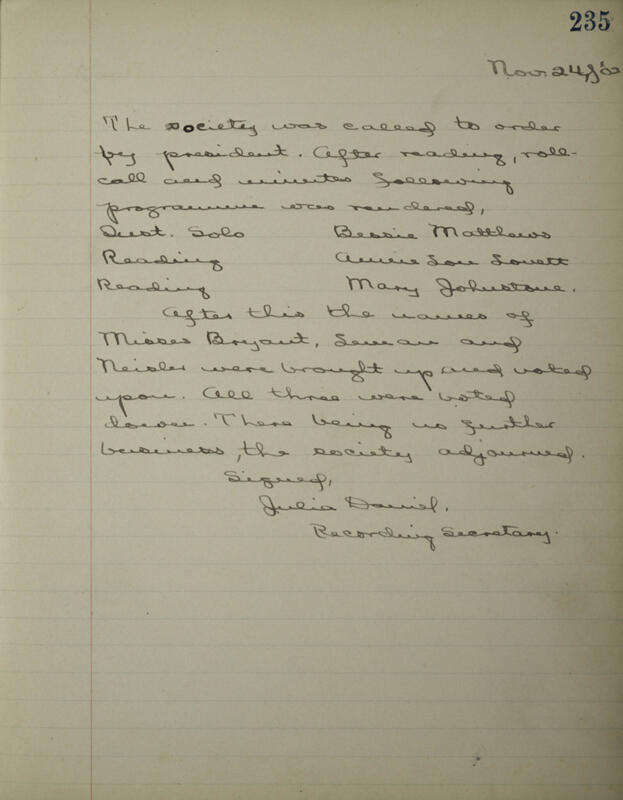 235
Nov. 24,
The society was called to order
by president. After reading, roll-
call and minutes following
programme was rendered,
Inst. Solo Bessie Matthews
Reading Annie Lou Lovett
Reading Mary Johnstone.
After this the names of
Misses Bryant, and
Neisler were brought up and voted
upon. All three were voted
down. There being no further
business, the society adjourned.
Signed,
Julia Daniel,
Recording Secretary.